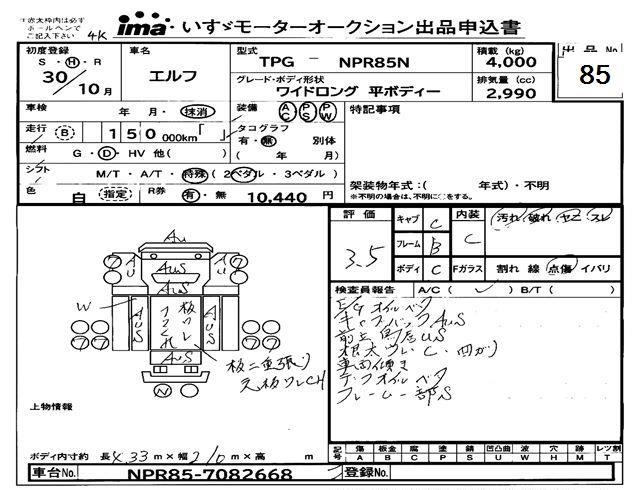 ※赤太枠内は必ず
ボールペンで
ご記入下さい
4K
ima いすゞモーターオークション出品申込書
初度登録
S・H・R
30/10月
車名
エルフ
型式
TPG - NPR85N
積載 (kg)
4,000
出品No
85
グレード・ボディ形状
ワイドロング 平ボディー
排気量 (cc)
2,990
車検
年 月・抹消
装備
AC PS PW
特記事項
走行 B 150 000km「 」
タコグラフ
有・無 別体
( 年 月)
燃料
G・D・HV 他( )
シフト
M/T・A/T・特殊(2ペダル・3ペダル)
架装物年式:( 年式)・不明
※不明の場合は、不明に○をする。
色
白 指定
R券
有・無 10,440 円
評価
3.5
キャブ C
フレーム B
ボディ C
内装
C
汚れ 破れ ヤニ スレ
Fガラス 割れ 線 点傷 イバリ
検査員報告 A/C( ✓ ) B/T( )
E/Gオイルベタ
キャブバックAuS
根太ワレC・曲がり
車両傾き
デフオイルベタ
フレーム一部S
AU
AuS
AuS
AuS
W
板ワレ
AuS
板二重張り
元板ワレCH
N
上物情報
ボディ内寸約 長4.33m×幅210m×高 m
記号 傷 板金 腐 塗 錆 凹凸曲 波 穴 跡 レツ割
A B C P S U W H M T
車台No. NPR85-7082668
登録No.